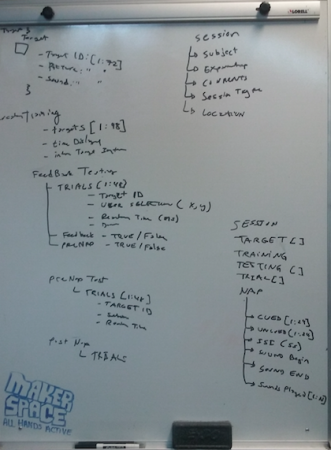 Target
- Target ID: [1:72]
- Picture: " "
- Sound: " "
}
- targets [1:48]
- time Delay
- inter Target
FeedBack Testing
TRIALS (1:48)
- Target ID
- USER SELECTION (x,y)
- Reaction Time (
Feedback - TRUE/False
preNAP - TRUE/False
pre Nap Test
TRIALS [1:48]
- TARGET ID
- Reaction Time
post Nap
TRIALS
SESSION
Subject
COMMENTS
Session Type
LOCATION
SESSION
TARGET []
TRAINING
TESTING []
TRIAL []
NAP
CUED [1:24]
UNCUED [1:24]
ISI
SOUND Begin
SOUND END
Sounds Played [1:
MAKER
SPACE
ALL HANDS ACTIVE